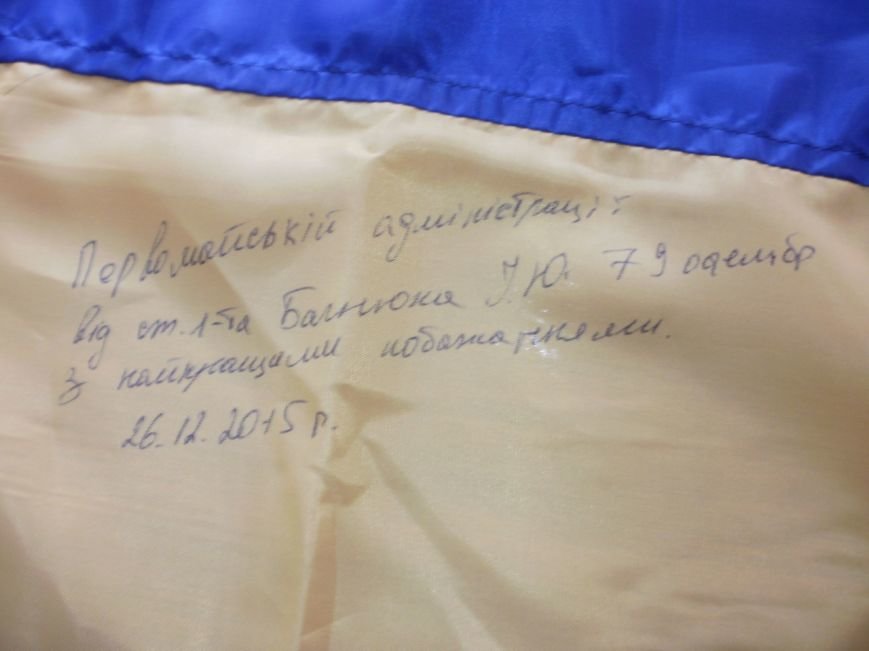 Первомайській адміністрації
від ст. л-та І.Ю. 79 оаембр
з найкращими побажаннями.
26.12.2015 р.